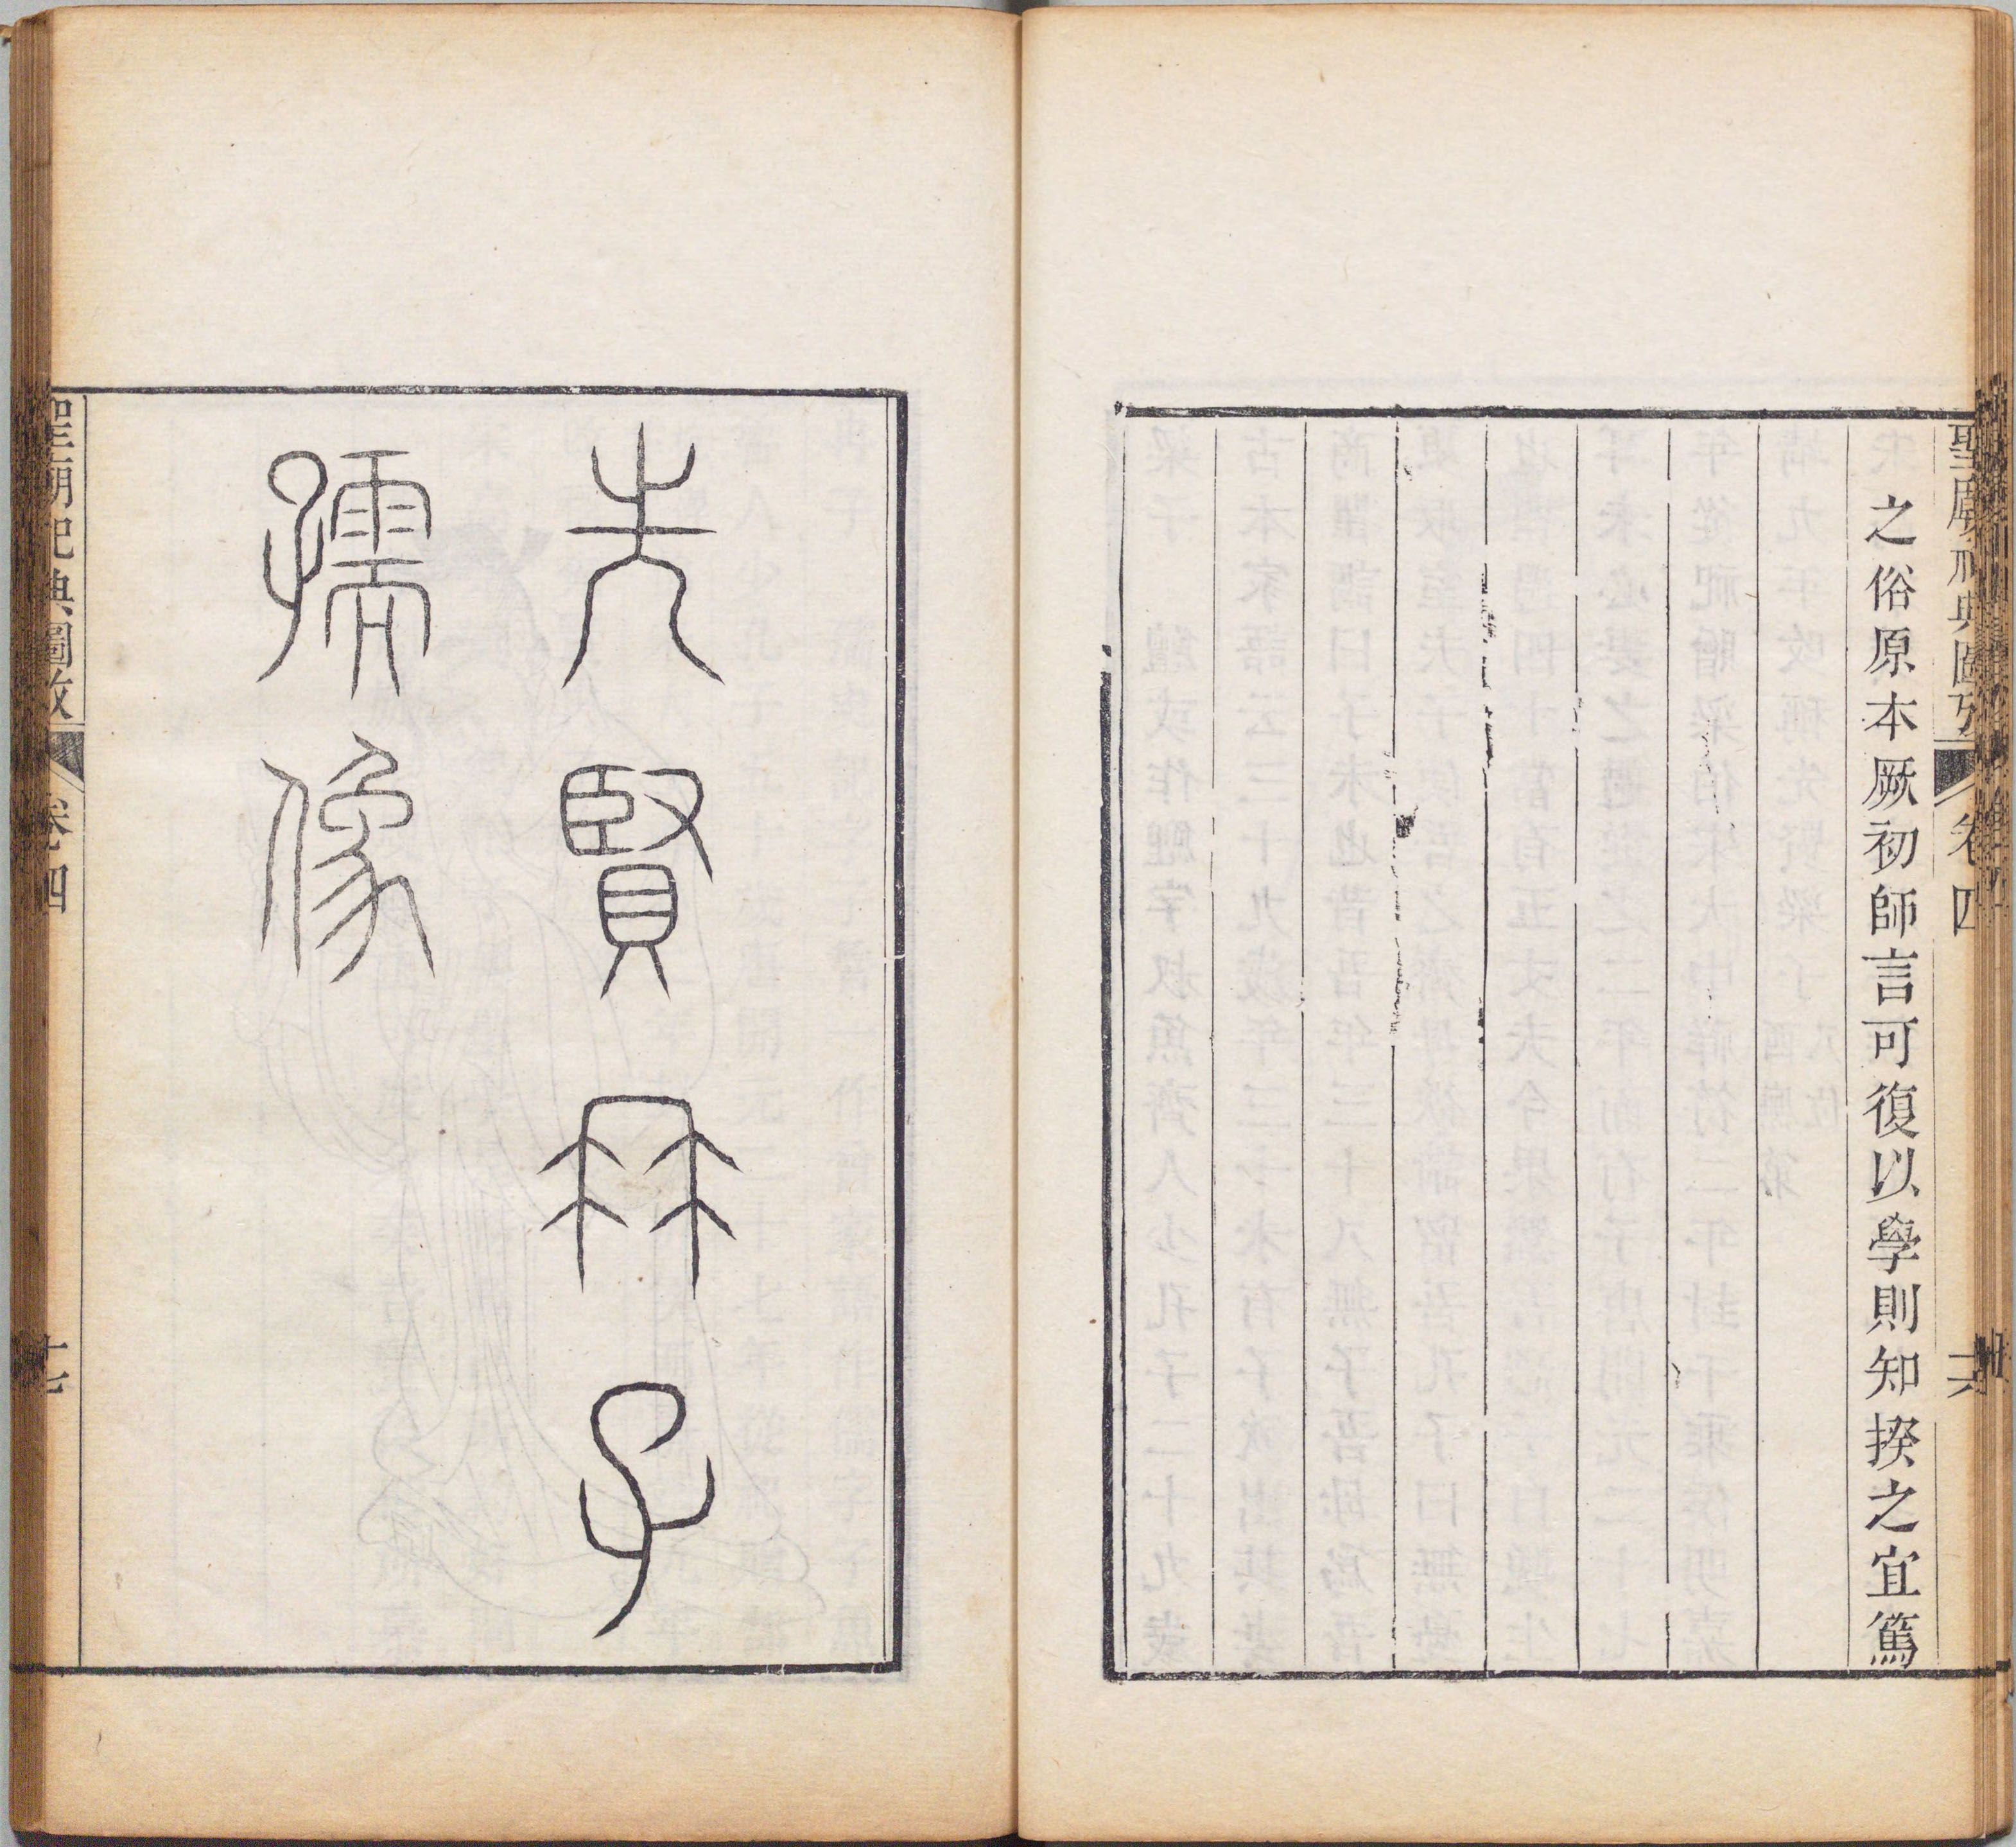 聖廟祀典圖攷
卷四
六
之俗原本厥初師言可復以學則知揆之宜篤
先賢冄子
孺像
聖廟祀典圖攷
卷四
七